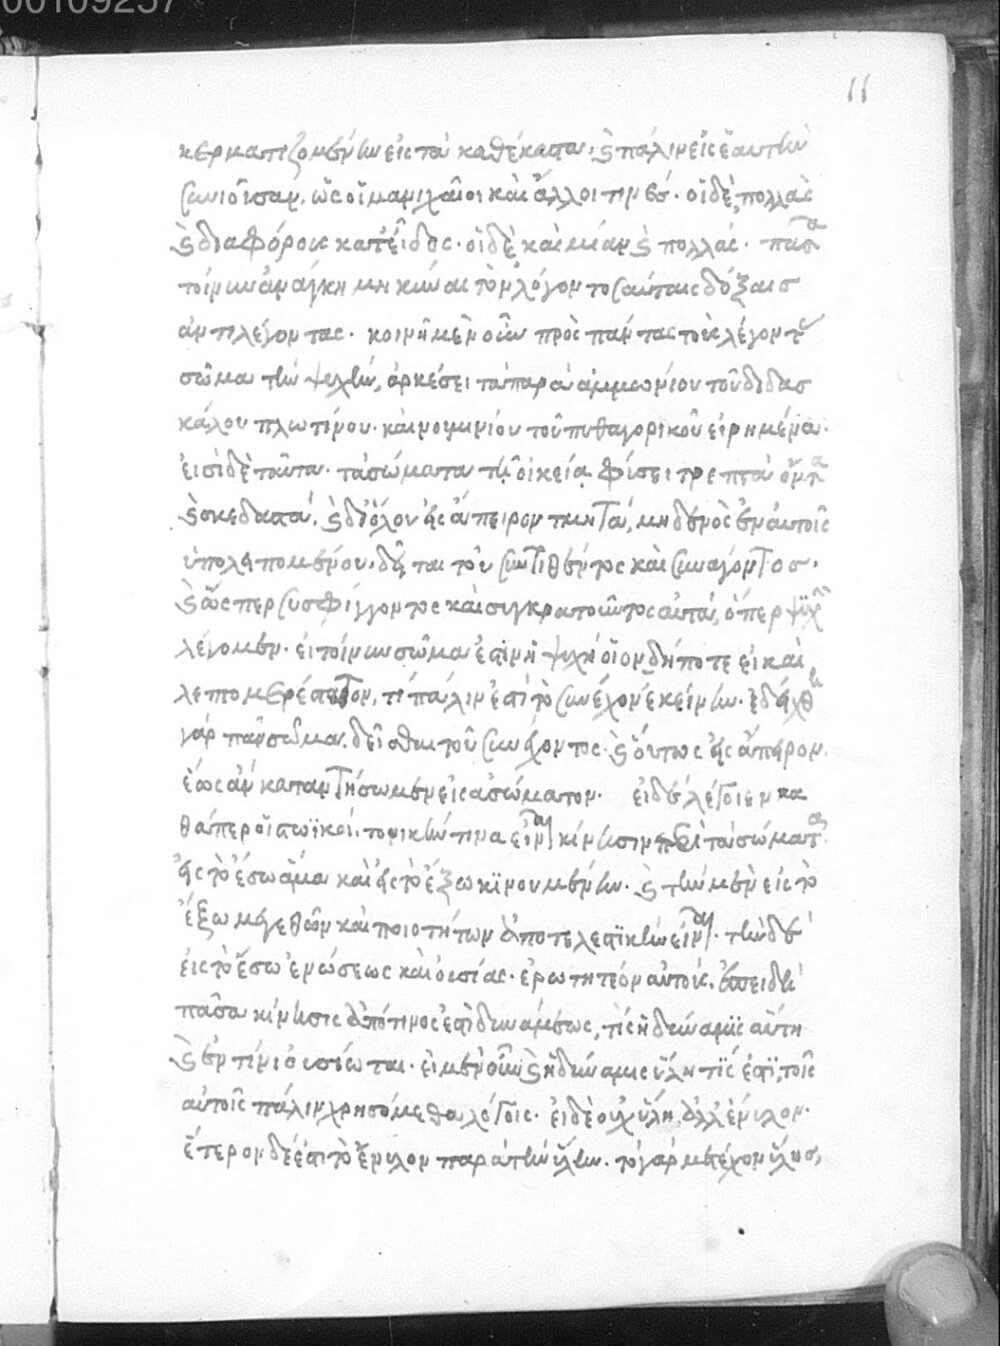 00109257
11
κερματιζομένην εἰς τὰ καθέκαστα, καὶ πάλιν εἰς ἑαυτὴν
συνιοῦσαν, ὡς οἱ μανιχαῖοι καὶ ἄλλοι τινές· οἱ δὲ πολλὰς
καὶ διαφόρους κατ' εἶδος· οἱ δὲ καὶ μίαν καὶ πολλάς· πᾶσα
τοίνυν ἀνάγκη μηκῦναι τὸν λόγον τοσαύταις δόξαις
ἀντιλέγοντας· κοινῇ μὲν οὖν πρὸς πάντας τοὺς λέγοντας
σῶμα τὴν ψυχὴν, ἀρκέσει τὰ παρὰ ἀμμωνίου τοῦ διδασ
κάλου πλωτίνου· καὶ νουμηνίου τοῦ πυθαγορικοῦ εἰρημένα·
εἰσὶ δὲ ταῦτα· τὰ σώματα τῇ οἰκείᾳ φύσει τρεπτὰ ὄντα
καὶ σκεδαστὰ, καὶ δι' ὅλου εἰς ἄπειρον τμητὰ, μηδενὸς ἐν αὐτοῖς
ὑπολειπομένου, δεῖται τοῦ συντιθέντος καὶ συνάγοντος,
καὶ ὥσπερ συσφίγγοντος καὶ συγκρατοῦντος αὐτά, ὅπερ ψυχὴν
λέγομεν· εἰ τοίνυν σῶμα ἐστὶν ἡ ψυχὴ οἷον δήποτε εἰ καὶ
λεπτομερέστατον, τί πάλιν ἐστὶ τὸ συνέχον ἐκείνην· ἐδείχθη
γὰρ πᾶν σῶμα δεῖσθαι τοῦ συνέχοντος· καὶ οὕτως εἰς ἄπειρον,
ἕως ἂν καταντήσωμεν εἰς ἀσώματον· εἰ δὲ λέγοιεν κα
θάπερ οἱ στωϊκοὶ, τονικήν τινα εἶναι κίνησιν περὶ τὰ σώματα,
εἰς τὸ ἔσω ἅμα καὶ εἰς τὸ ἔξω κινουμένην· καὶ τὴν μὲν εἰς τὸ
ἔξω μεγεθῶν καὶ ποιοτήτων ἀποτελεστικὴν εἶναι· τὴν δὲ
εἰς τὸ ἔσω ἑνώσεως καὶ οὐσίας· ἐρωτητέον αὐτοὺς, ἐπειδὴ
πᾶσα κίνησις ἀπό τινος ἐστὶ δυνάμεως, τίς ἡ δύναμις αὕτη
καὶ ἐν τίνι οὐσίωται· εἰ μὲν οὖν καὶ ἡ δύναμις ὕλη τίς ἐστι, τοῖς
αὐτοῖς πάλιν χρησόμεθα λόγοις· εἰ δὲ οὐχ ὕλη ἀλλ' ἔνυλον·
ἕτερον δέ ἐστι τὸ ἔνυλον παρὰ τὴν ὕλην· τὸ γὰρ μετέχον ὕλης,